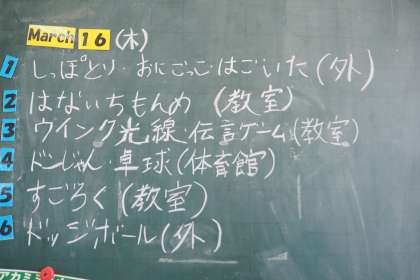 March 16 (木)
1 しっぽとり・おにごっこ・はごいた(外)
2 はないちもんめ (教室)
3 ウインク光線・伝言ゲーム(教室)
4 ドンじゃん・卓球(体育館)
5 すごろく(教室)
6 ドッジボール(外)
アカミ